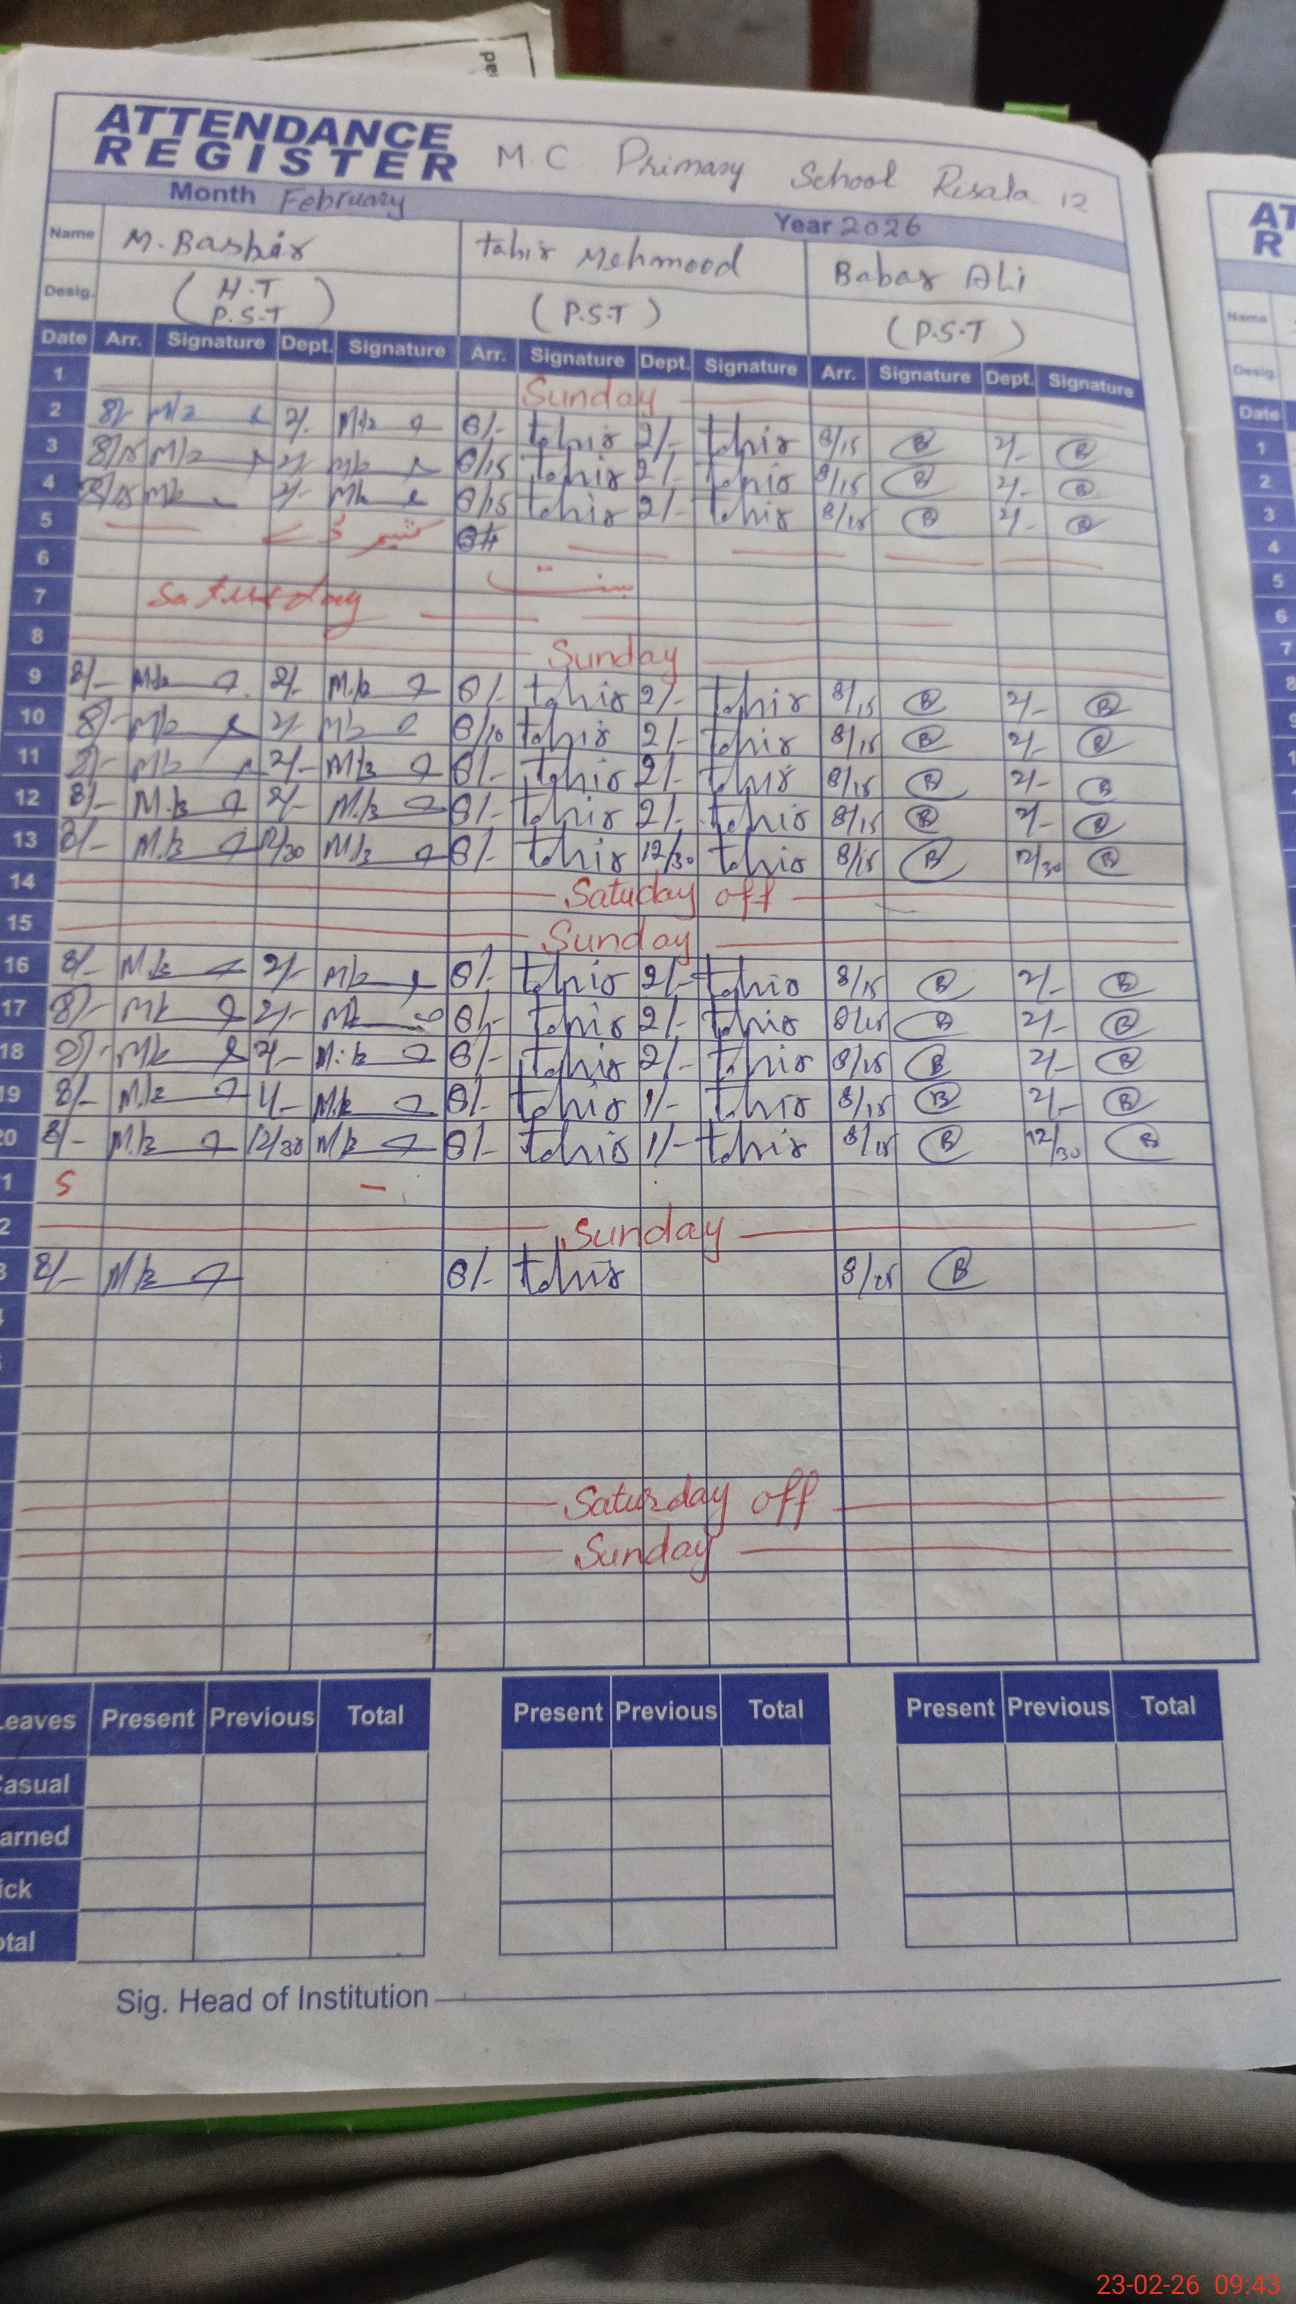 ATTENDANCE
REGISTER M.C Primary School Risala 12
Month February Year 2026
Name M. Bashir tahir Mehmood Babar Ali
Desig. (H.T P.S.T) (P.S.T) (P.S.T)
Date Arr. Signature Dept. Signature Arr. Signature Dept. Signature Arr. Signature Dept. Signature
1 Sunday
2 8/- 2/- 8/- tahir 2/- tahir 8/15 B 2/- B
3 8/15 2/- 8/15 tahir 2/- tahir 8/15 B 2/- B
4 8/15 2/- 8/15 tahir 2/- tahir 8/15 B 2/- B
5 کشمیر ڈے
6 بسنت
7 Saturday
8 Sunday
9 8/- 2/- 8/- tahir 2/- tahir 8/15 B 2/- B
10 8/- 2/- 8/10 tahir 2/- tahir 8/15 B 2/- B
11 2/- 8/- tahir 2/- tahir 8/15 B 2/- B
12 8/- 2/- 8/- tahir 2/- tahir 8/15 B 2/- B
13 8/- 12/30 8/- tahir 12/30 tahir 8/15 B 12/30 B
14 Satuday off
15 Sunday
16 8/- 2/- 8/- tahir 2/- tahir 8/15 B 2/- B
17 8/- 2/- 8/- tahir 2/- tahir 8/15 B 2/- B
18 8/- 2/- 8/- tahir 2/- tahir 8/15 B 2/- B
19 8/- 8/- tahir 1/- tahir 8/15 B 2/- B
20 8/- 12/30 8/- tahir 1/- tahir 8/15 B 12/30 B
1 S -
2 Sunday
3 8/- 8/- tahir 8/15 B
Saturday off
Sunday
Leaves Present Previous Total Present Previous Total Present Previous Total
Casual
arned
ick
otal
Sig. Head of Institution
AT
R
Name
Desig
Date
1
2
3
4
5
6
7
8
23-02-26 09:43